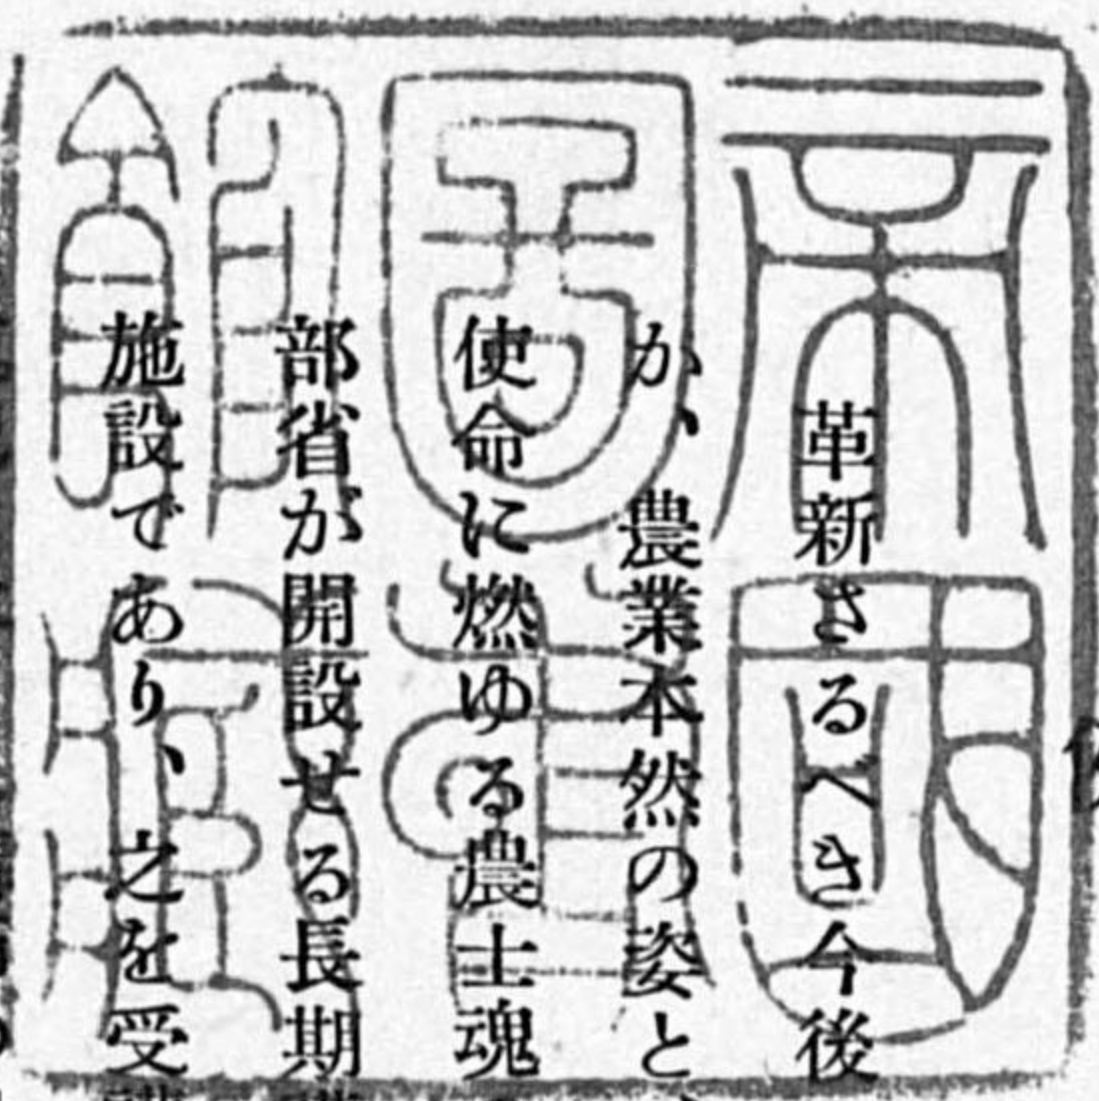 革新さるべき今後
か、農業本然の姿と
使命に燃ゆる農士魂
部省が開設せる長期
施設であり、之を受